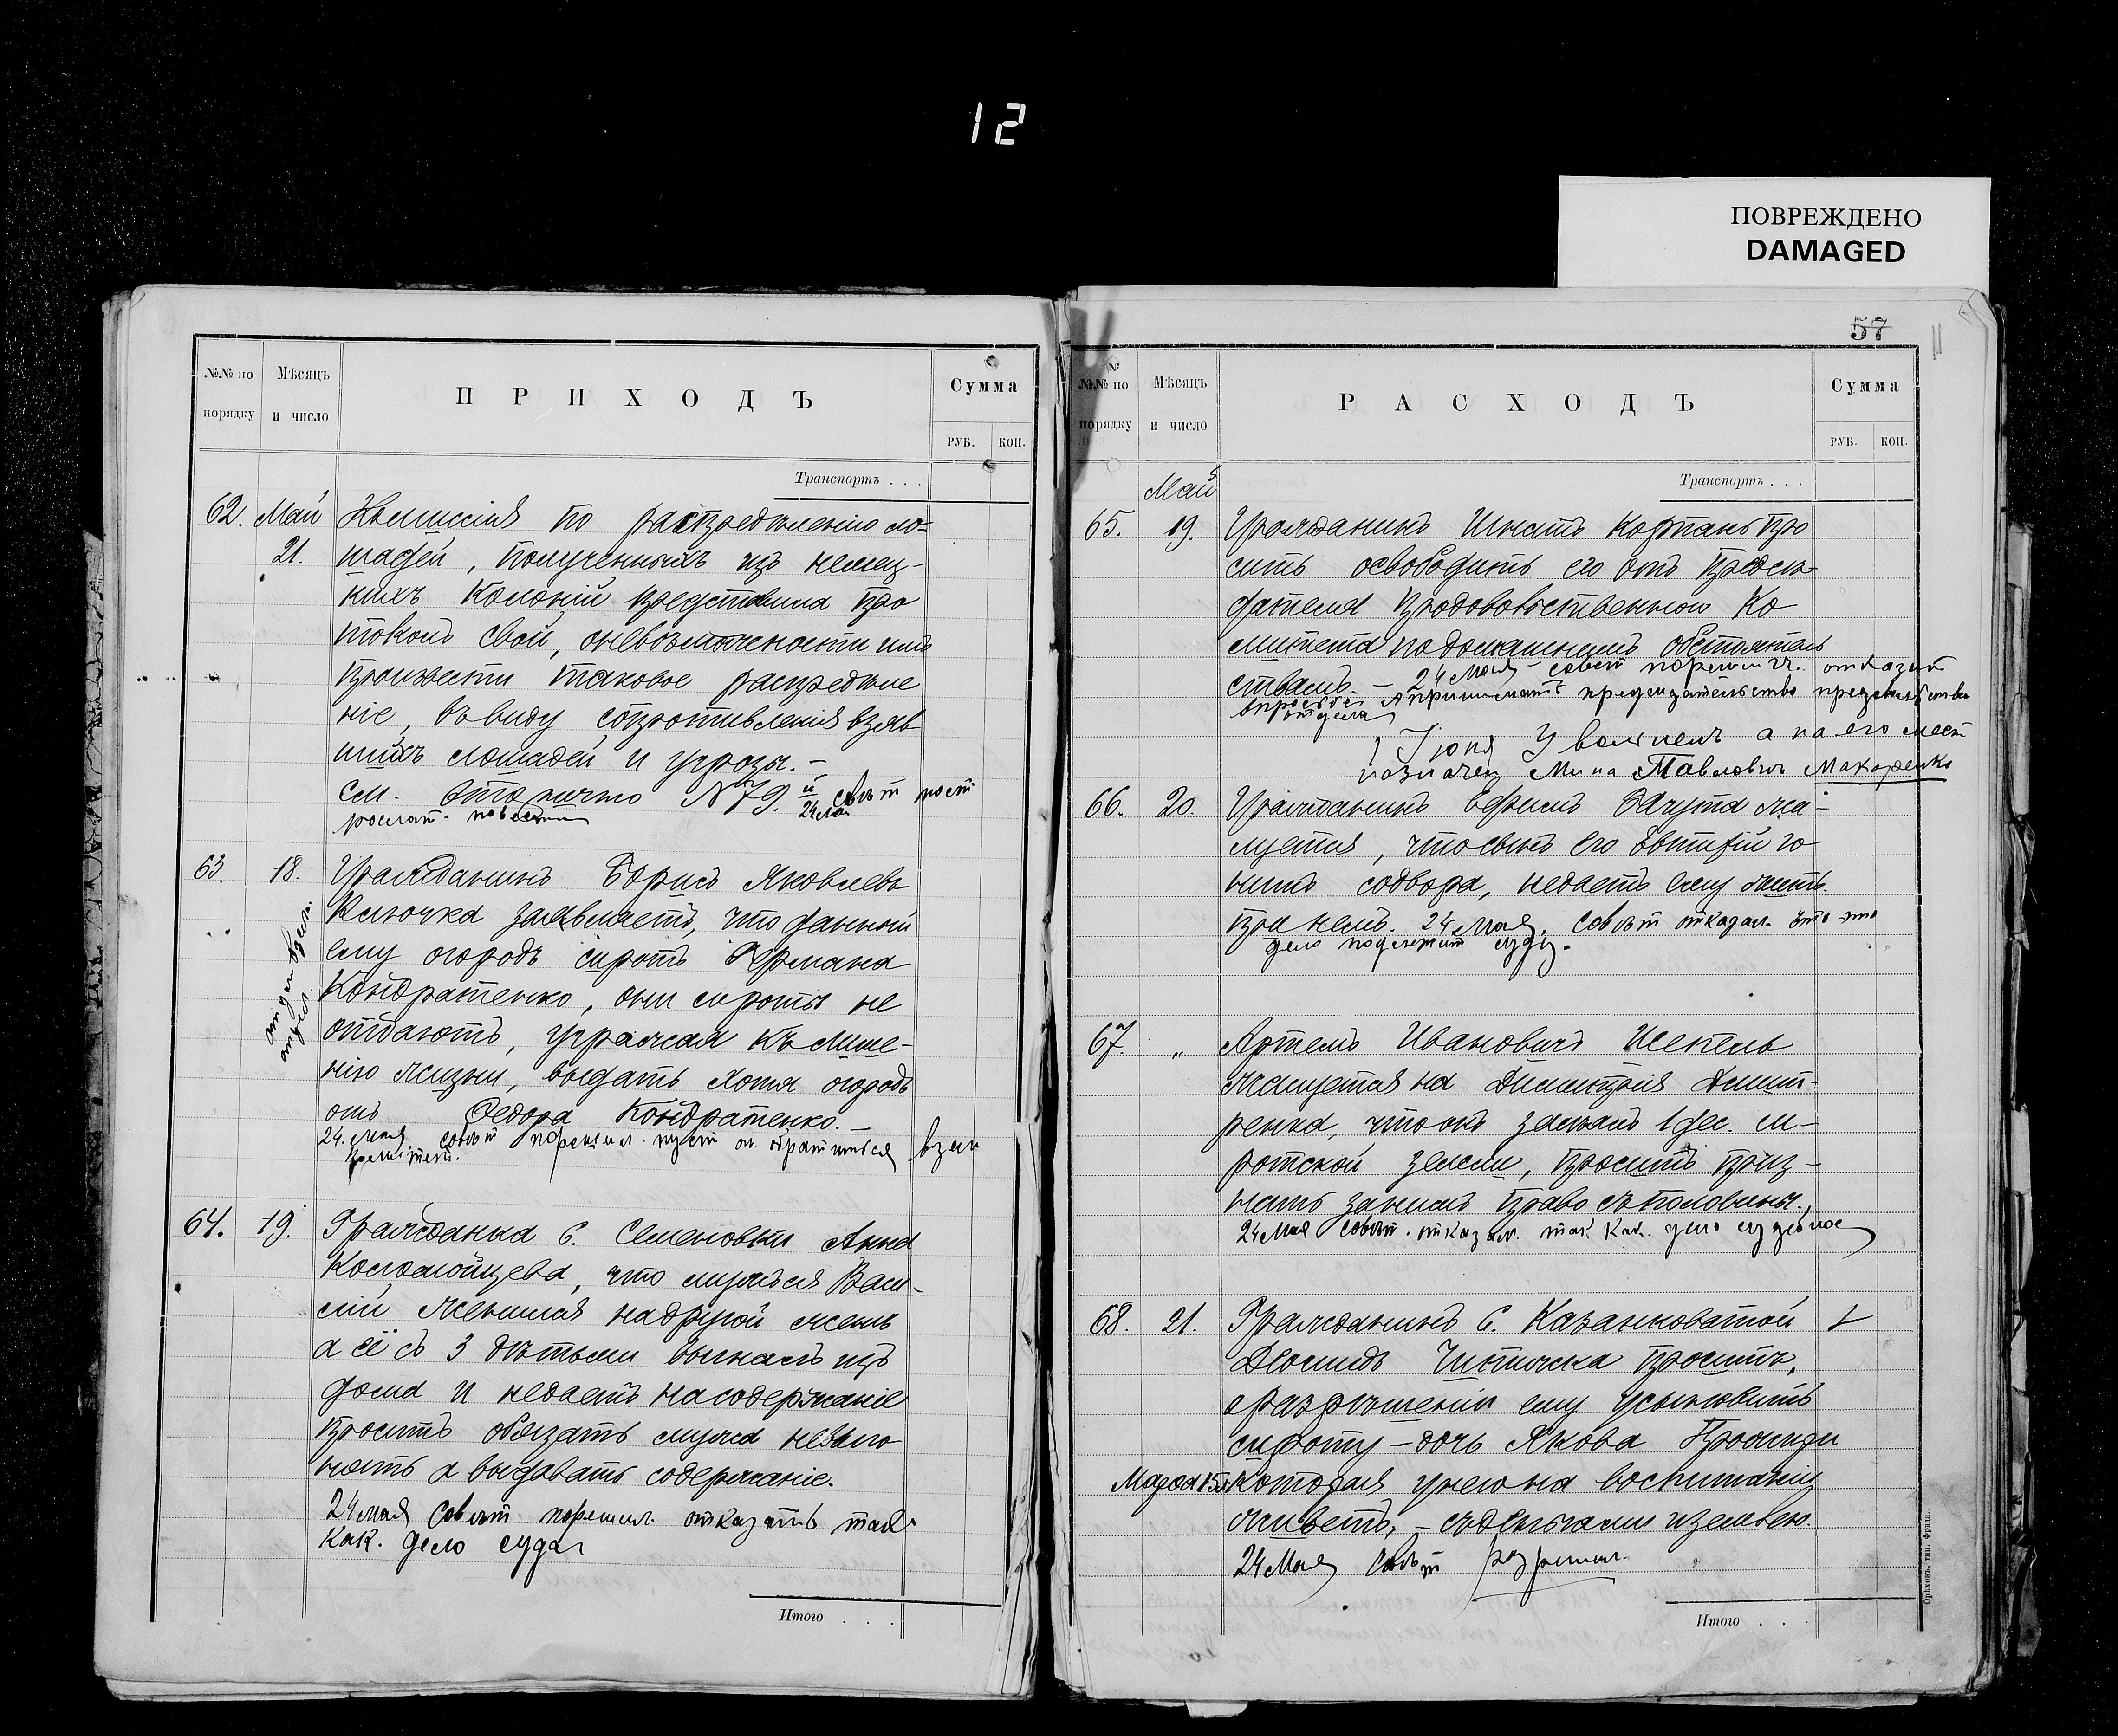 12
ПОВРЕЖДЕНО
DAMAGED
№№ по порядку
Мѣсяцъ и число
ПРИХОДЪ
Сумма
РУБ. КОП.
Транспортъ . . .
62. Май Комиссія по распредѣленію ло-
21. шадей, полученныхъ изъ немец-
кихъ колоній представила про
токолъ свой, оневозможности имъ
произвести таковое распредѣле
ніе, ввиду сопротивленія взяв
шихъ лошадей и угрозы. —
см. отношеніе № 79. 24 мая совѣт
63. 18. Гражданинъ Борисъ Яковлевъ
Ключка заявляетъ, что данный
ему огородъ сиротъ Германа
Кондратенко, они сироты не
отдаютъ, угрожая къ лише-
нію жизни, выдать хотя огородъ
отъ Федора Кондратенко. —
24. мая совѣт порешил. пуст он. обратиться взем
комитет.
64. 19. Гражданка с. Семеновки Анна
Коломойцева, что мужъ ея Васи-
лій женился надругой женѣ
а её съ 3 дѣтьми выгналъ изъ
дома и недаетъ насодержаніе
проситъ обязать мужа невыго
нять а выдавать содержаніе.
24 мая совѣт порешил. отказать так
как. дело суда
Итого . . .
57
11
№№ по порядку
Мѣсяцъ и число
РАСХОДЪ
Сумма
РУБ. КОП.
Транспортъ . . .
Май
65. 19. Гражданинъ Игнатъ Кортань про
ситъ освободить его отъ предсѣ-
дателя продовольственнаго ко
митета подомашнимъ обстоятель
ствамъ. — 24 мая совѣт порешил. отказат
впросьбе апринимать председательство
отдела
1 Июня Уволнен а на его мест
назначен Мина Павлович Макаренко
66. 20. Гражданинъ Ефимъ Бачута жа-
луется, что сынъ его Евтифій го
нитъ содвора, недаетъ ему жить
при немъ. 24 мая. совѣт отказал. что это
дело подлежит суду.
67. „ Артемъ Ивановичъ Шепель
жалуется на Дмитрія Дмит-
ренка, что онъ засѣялъ 1 дес. си-
ротской земли, проситъ приз-
нать занимъ право съ половины.
24 мая совѣт. отказал. так как. дело судебное
68. 21. Гражданинъ с. Казанковатой
Деомидъ Чистичка проситъ,
оразрѣшеніи ему усыновить
сироту — дочь Якова
которая унего на воспитаніи
живетъ, — съденьгами иземлею
24 Мая совѣт разрешил.
Итого . . .
Орѣховъ, тип. Фрида.